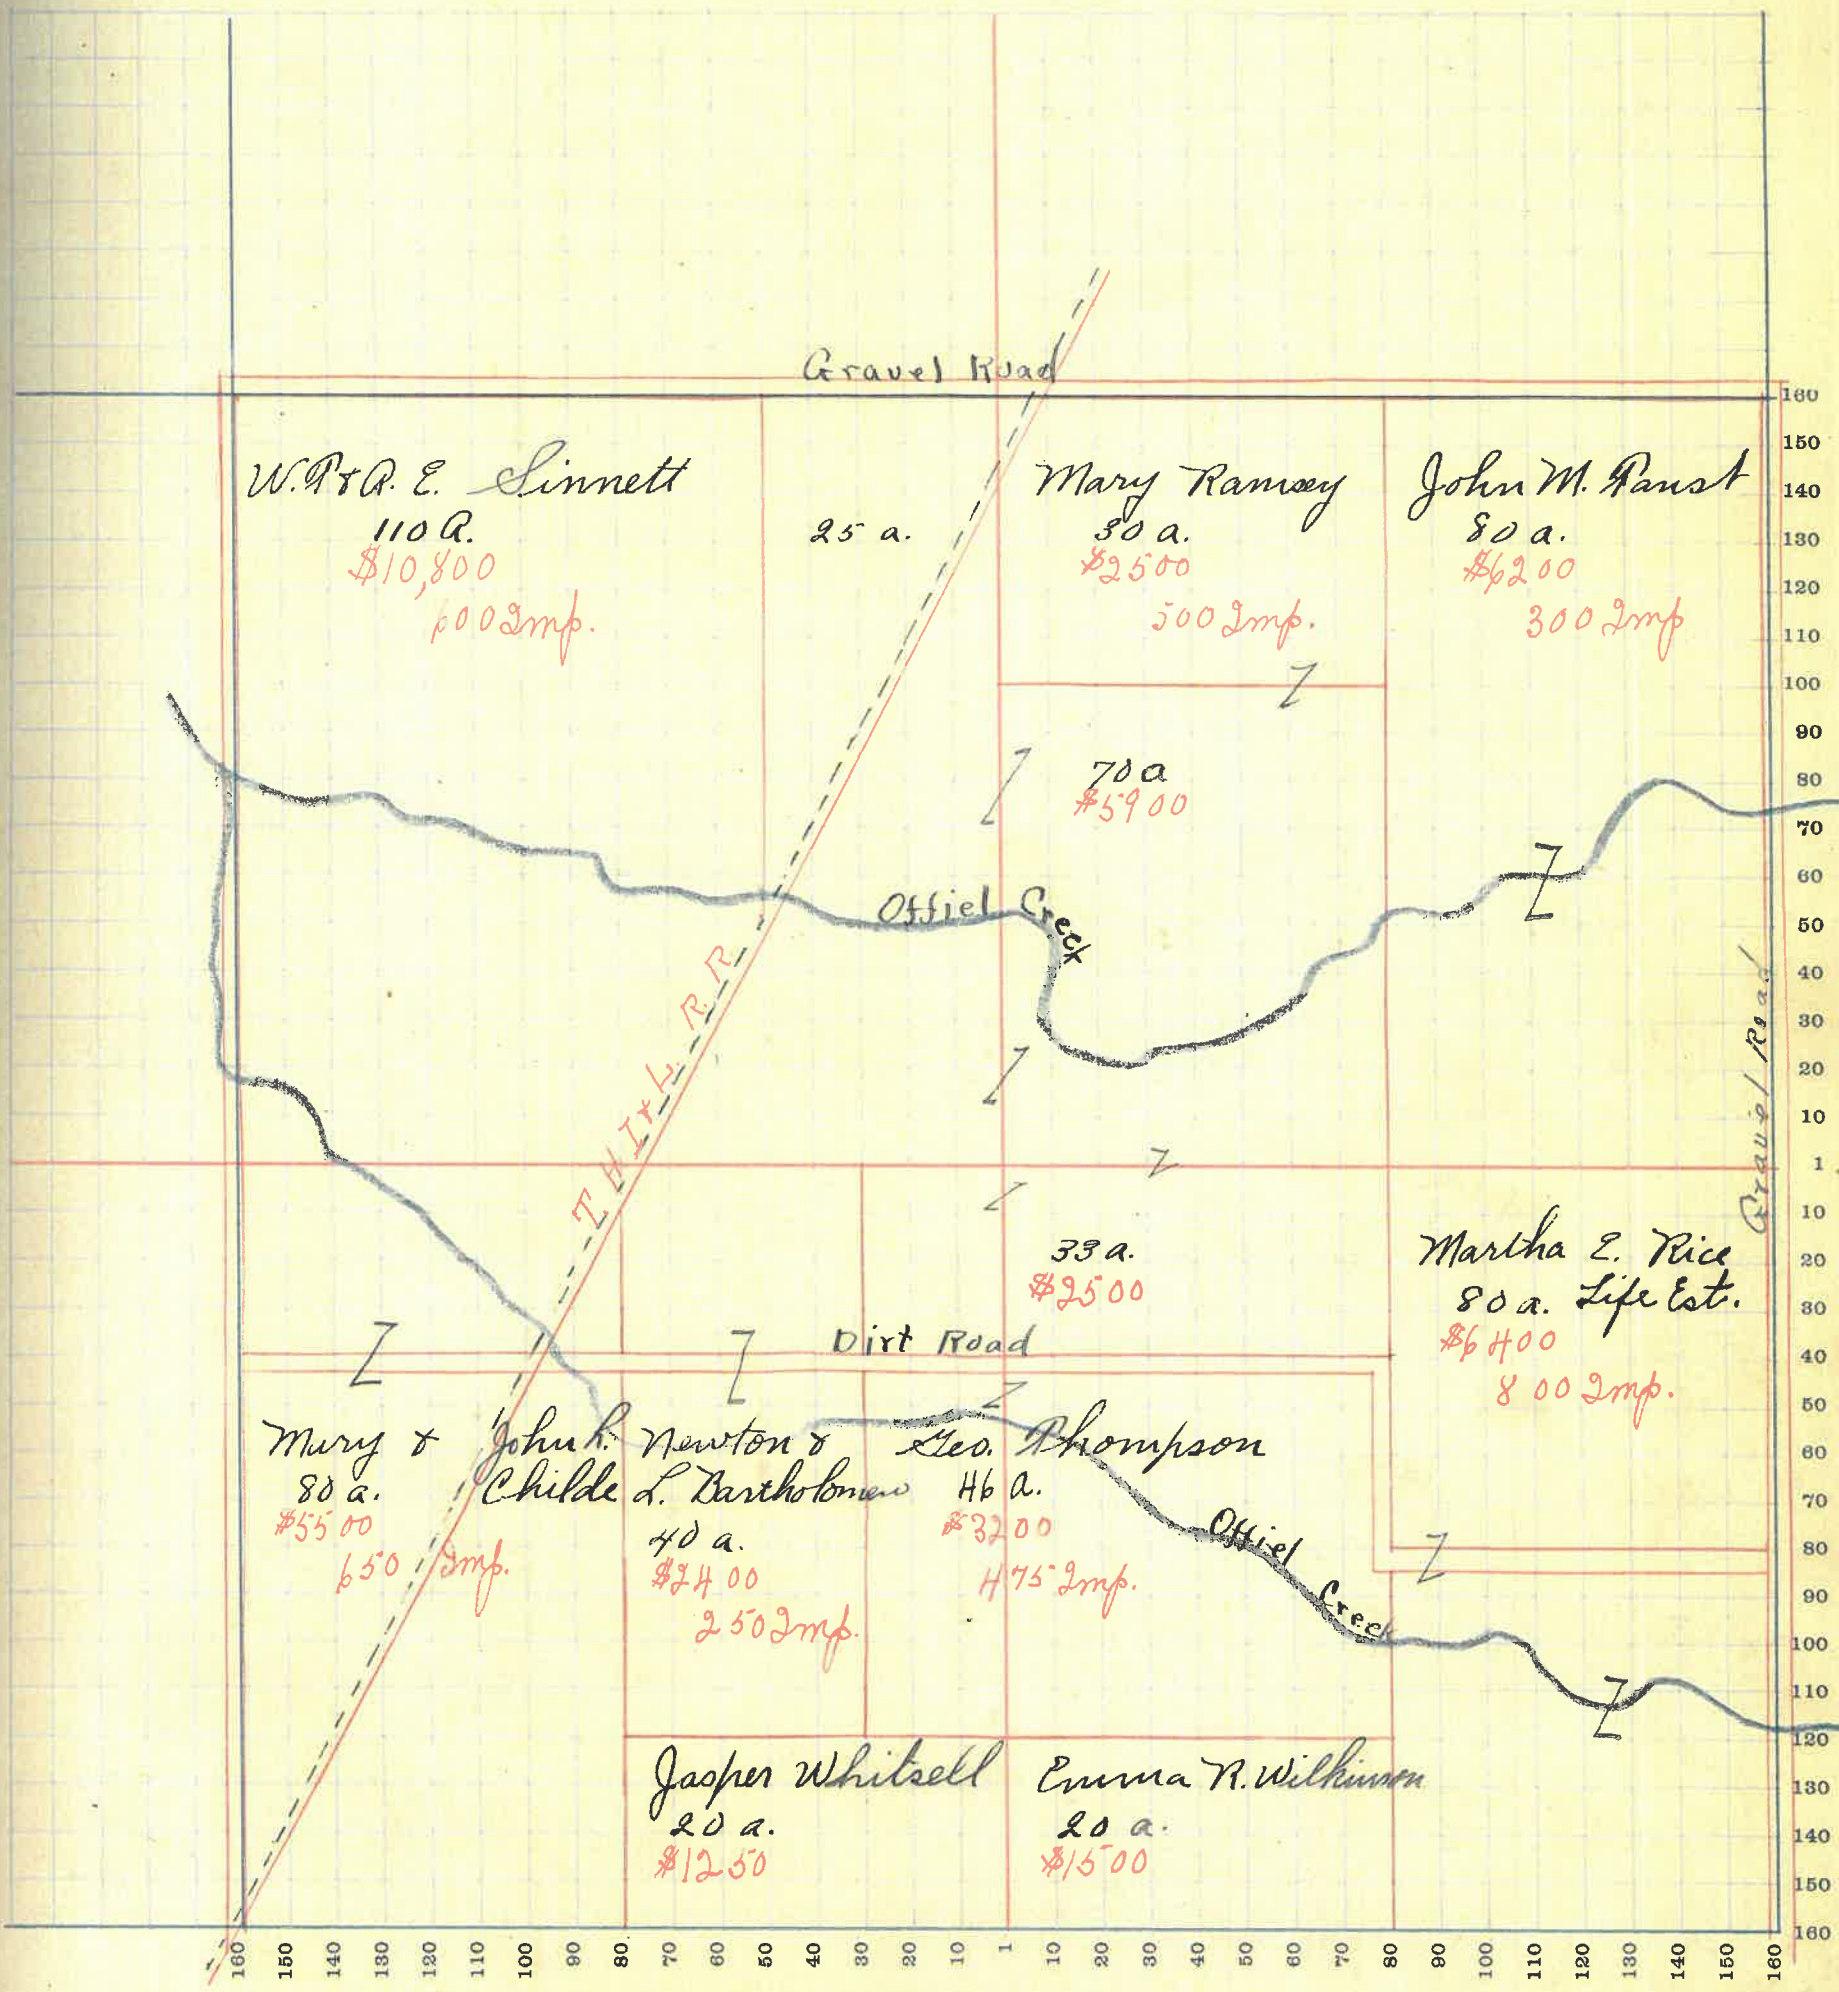 Gravel Road
W.P. & A. E. Sinnett
110 A.
$10,800
600 Imp.
25 a.
Mary Ramsey
30 a.
$2500
500 Imp.
John M. Faust
80 a.
$6200
300 Imp
70 a
$5900
Offiel Creek
T H I & L R. R
Gravel Road
33 a.
$2500
Martha E. Rice
80 a. Life Est.
$6400
800 Imp.
Dirt Road
Mary & John R. Childe
80 a.
$5500
650 Imp.
Newton &
L. Bartholomew
40 a.
$2400
250 Imp.
Geo. Thompson
46 a.
$3200
475 Imp.
Offiel Creek
Jasper Whitsell
20 a.
$1250
Emma R. Wilkinson
20 a.
$1500
160
150
140
130
120
110
100
90
80
70
60
50
40
30
20
10
1
10
20
30
40
50
60
70
80
90
100
110
120
130
140
150
160
160 150 140 130 120 110 100 90 80 70 60 50 40 30 20 10 1 10 20 30 40 50 60 70 80 90 100 110 120 130 140 150 160